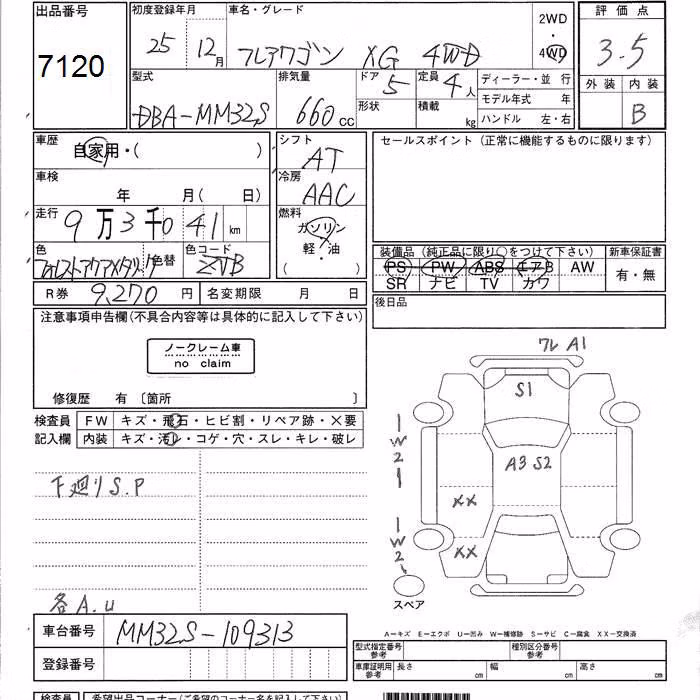 出品番号 初度登録年月 車名・グレード 評価点
7120 25年 12月 フレアワゴン XG 4WD 2WD・4WD 3.5
型式 排気量 ドア 5 定員 4人 ディーラー・並行 外装 内装
DBA-MM32S 660cc 形状 積載 kg モデル年式 年 B
ハンドル 左・右
車歴 自家用・( ) シフト AT セールスポイント(正常に機能するものに限ります)
車検 年 月( 日) 冷房 AAC
走行 9万3千041km 燃料 ガソリン
軽・油
( )
色 色替 色コード ZVB 装備品(純正品に限り○をつけて下さい) 新車保証書
PS PW ABS エアB AW 有・無
SR ナビ TV カワ
R券 9,270円 名変期限 月 日 後日品
注意事項申告欄(不具合内容等は具体的に記入して下さい)
ノークレーム車
no claim
修復歴 有〔箇所 〕
検査員 FW キズ・飛石・ヒビ割・リペア跡・×要
記入欄 内装 キズ・汚レ・コゲ・穴・スレ・キレ・破レ
フレ A1
S1
W2
A3 S2
XX
W2
XX
スペア
下廻りS.P
各A.U
車台番号 MM32S-109313
登録番号
A-キズ E-エクボ U-凹み W-補修跡 S-サビ C-腐食 XX-交換済
型式指定番号 参考 種別区分番号 参考
車庫証明用 参考 長さ cm 幅 cm 高さ cm
検査員 希望出品コーナー(ご希望のコーナー名を記入して下さい)